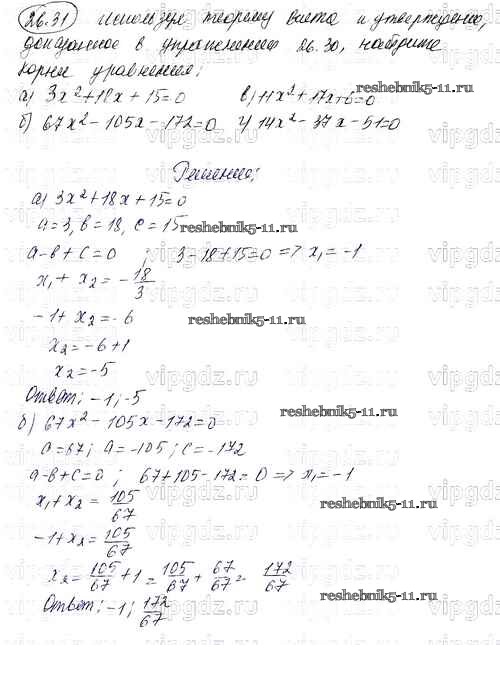 26.31 Используя теорему Виета и утверждение,
доказанное в упражнении 26.30, найдите
корни уравнения:
а) 3x²+18x+15=0 в) 11x²+17x+6=0
б) 67x²-105x-172=0 г) 14x²-37x-51=0
Решение:
а) 3x²+18x+15=0
a=3, b=18, c=15
reshebnik5-11.ru
a-b+c=0 ; 3-18+15=0 => x₁=-1
x₁+x₂=-18/3
-1+x₂=-6
reshebnik5-11.ru
x₂=-6+1
x₂=-5
Ответ: -1; -5
б) 67x²-105x-172=0
reshebnik5-11.ru
a=67; a=-105; c=-172
a-b+c=0 ; 67+105-172=0 => x₁=-1
x₁+x₂=105/67
reshebnik5-11.ru
-1+x₂=105/67
x₂=105/67+1=105/67+67/67=172/67
Ответ: -1; 172/67
reshebnik5-11.ru
vipgdz.ru